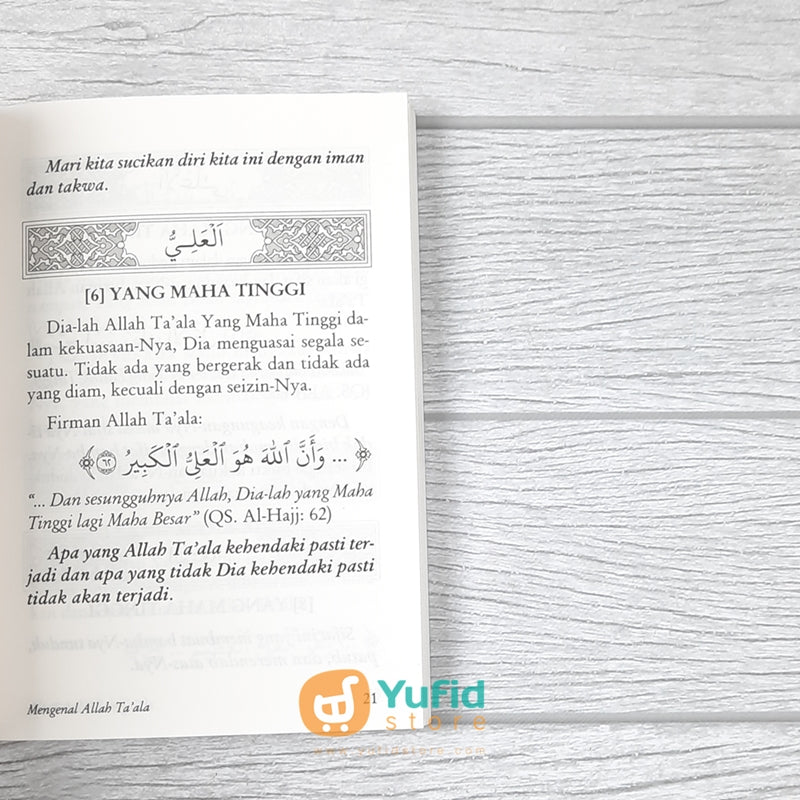 Mari kita sucikan diri kita ini dengan iman
dan takwa.
اَلْعَلِيُّ
[6] YANG MAHA TINGGI
Dia-lah Allah Ta'ala Yang Maha Tinggi da-
lam kekuasaan-Nya, Dia menguasai segala se-
suatu. Tidak ada yang bergerak dan tidak ada
yang diam, kecuali dengan seizin-Nya.
Firman Allah Ta'ala:
﴿ ... وَأَنَّ ٱللَّهَ هُوَ ٱلْعَلِىُّ ٱلْكَبِيرُ ٦٢ ﴾
“... Dan sesungguhnya Allah, Dia-lah yang Maha
Tinggi lagi Maha Besar” (QS. Al-Hajj: 62)
Apa yang Allah Ta'ala kehendaki pasti ter-
jadi dan apa yang tidak Dia kehendaki pasti
tidak akan terjadi.
Mengenal Allah Ta'ala
21
Yufid
store
www.yufidstore.com